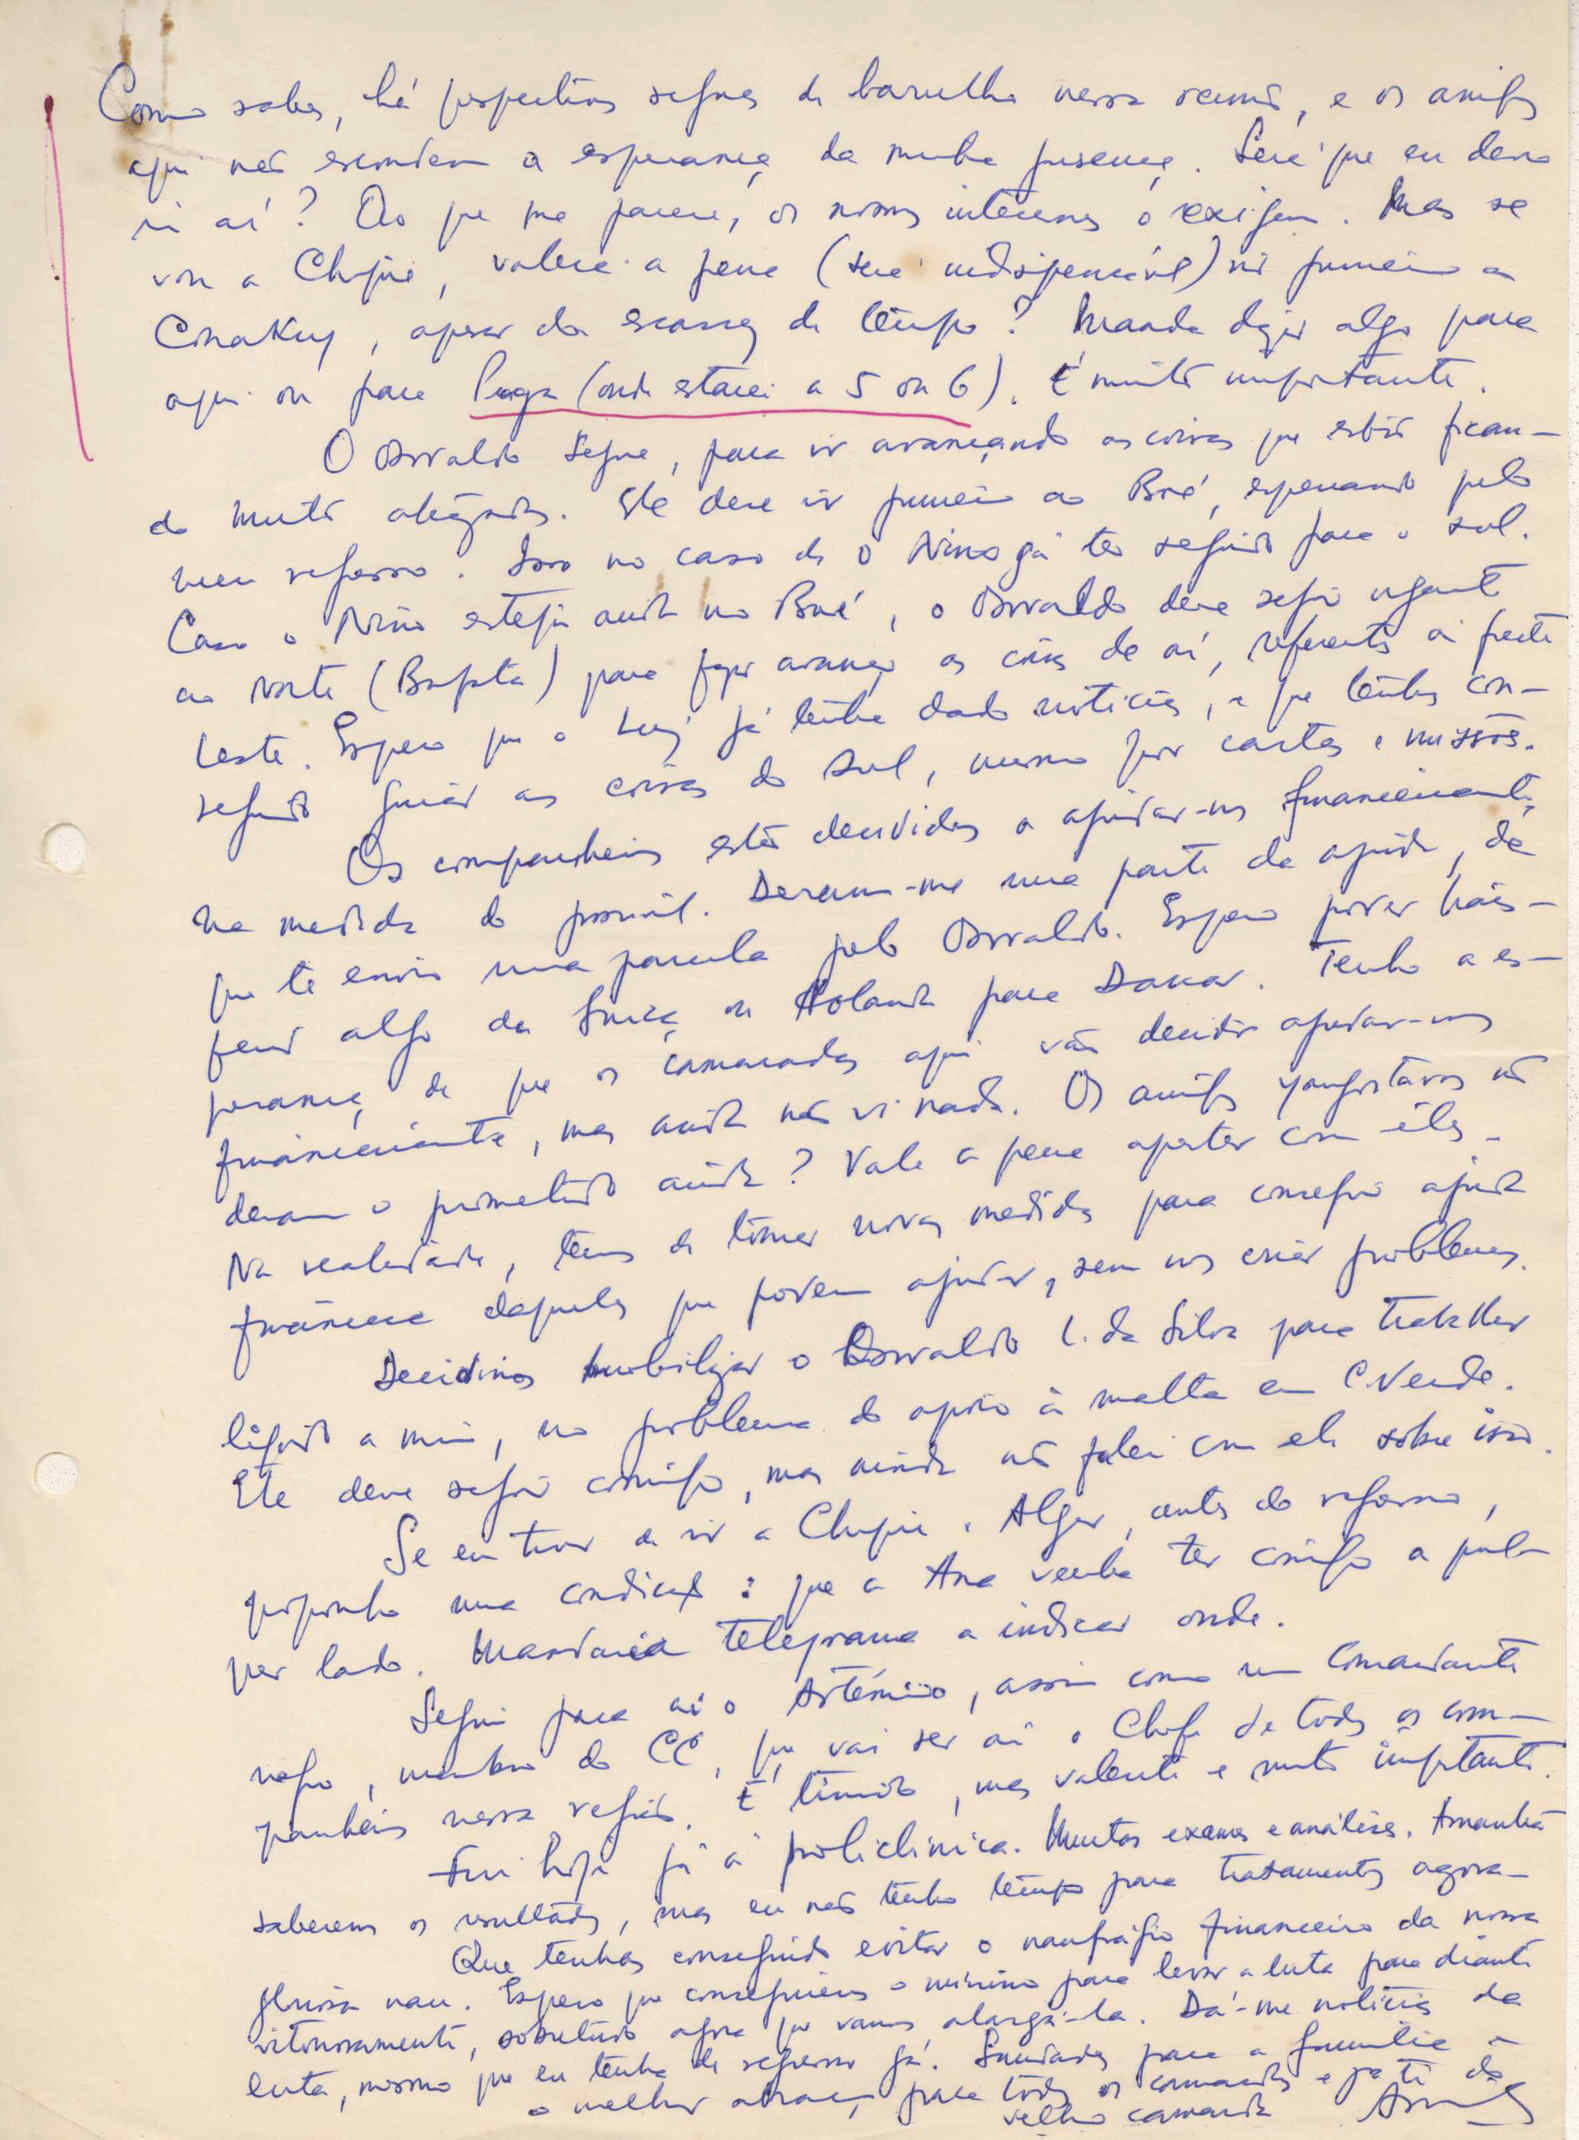 Como sabes, há perspectivas seguras de barulho nessa reunião, e os amigos
aqui não escondem a esperança da minha presença. Será que eu devo
ir aí? Ao que me parece, os nossos interesses o exigem. Mas se
vou a Chipre, valerá a pena (será indispensável) ir primeiro a
Conakry, apesar da escassez de tempo? Manda dizer algo para
aqui ou para Praga (onde estarei a 5 ou 6). É muito importante.
O Osvaldo segue, para ir avançando as coisas que estão fican-
do muito atrazadas. Ele deve ir primeiro ao Boé, esperando pelo
meu regresso. Isso no caso de o Nino já ter seguido para o sul.
Caso o Nino esteja ainda no Boé, o Osvaldo deve seguir urgente
ao norte para fazer avançar as coisas de aí, referentes à frente
Leste. Espero que o Luiz já tenha dado notícias, e que tenhas con-
seguido guiar as coisas do sul, mesmo por cartas e missões.
Os companheiros estão decididos a ajudar-nos financeiramente,
na medida do possível. Deram-me uma parte da ajuda, da
que te envio uma parcela pelo Osvaldo. Espero poder trans-
ferir algo da Suiça ou Holanda para Dakar. Tenho a es-
perança de que os camaradas aqui vão decidir ajudar-nos
financeiramente, mas ainda não vi nada. Os amigos yougoslavos não
deram o prometido ainda? Vale a pena apertar com êles.
Na realidade, temos de tomar novas medidas para conseguir ajuda
financeira daqueles que podem ajudar, sem nos criar problemas.
Decidimos mobilizar o Osvaldo L. da Silva para trabalhar
ligado a mim, no problema do apoio à malta em C. Verde.
Ele deve seguir comigo, mas ainda não falei com ele sobre isso.
Se eu tiver de ir a Chipre e Alger, antes do regresso,
proponho uma condição: que a Ana venha ter comigo a qual-
quer lado. Mandaria telegrama a indicar onde.
Segui para aí o Artémio, assim como um Comandante
negro, membro do CC, que vai ser aí o Chefe de todos os com-
panheiros nessa região. É tímido, mas valente e muito importante.
Fui hoje já à policlínica. Muitos exames e análises. Amanhã
saberemos os resultados, mas eu não tenho tempo para tratamentos agora.
Que tenhas conseguido evitar o naufrágio financeiro da nossa
gloriosa nau. Espero que conseguiremos o mínimo para levar a luta para diante
vitoriosamente, sobretudo agora que vamos alargá-la. Dá-me notícias da
luta, mesmo que eu tenha de regressar já. Saudades para a família e
o melhor abraço para todos os camaradas e pa ti do
velho camarada